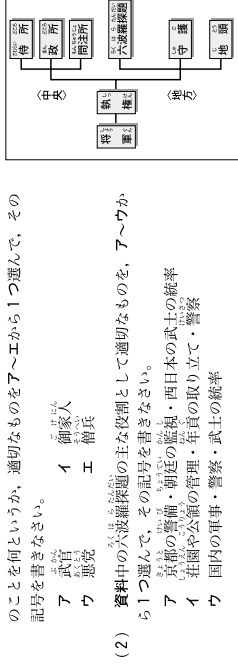 のことを何というか，適切なものをア～エから1つ選んで，その
記号を書きなさい。
ア 武官 イ 御家人
ウ 悪党 エ 僧兵
(2) 資料中の六波羅探題の主な役割として適切なものを，ア～ウか
ら1つ選んで，その記号を書きなさい。
ア 京都の警備・朝廷の監視・西日本の武士の統率
イ 荘園や公領の管理・年貢の取り立て・警察
ウ 国内の軍事・警察・武士の統率
将軍
執権
〈中央〉
侍所
政所
問注所
〈地方〉
六波羅探題
守護
地頭